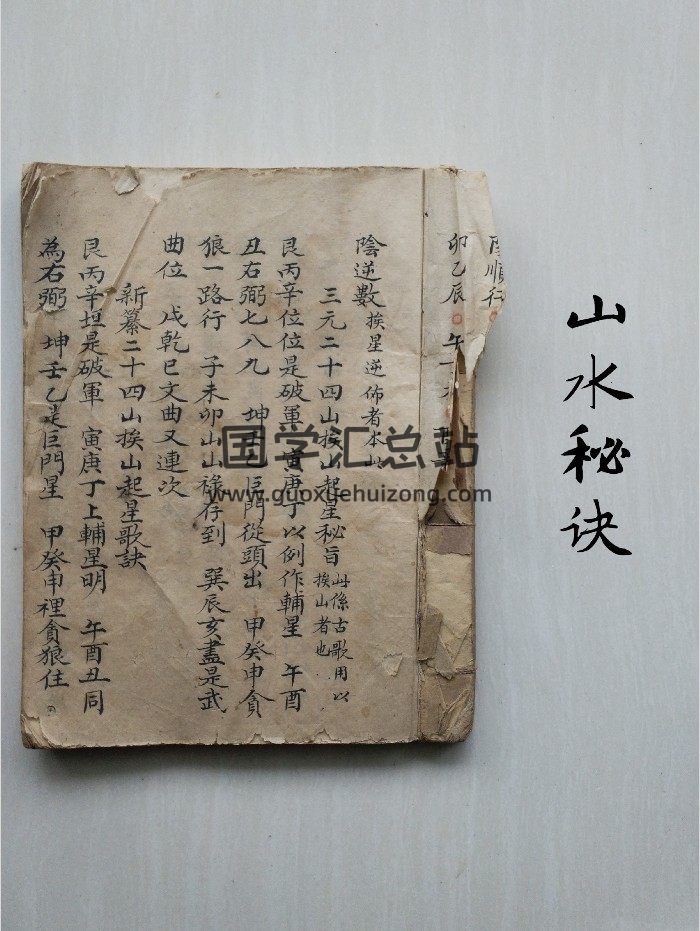 山水秘诀
陰順行
卯乙辰 午
陰逆數 挨星逆佈者本山
三元二十四山挨山起星秘旨 此係古歌用以挨山者也
艮丙辛位位是破軍 寅庚丁以例作輔星 午酉
丑右弼七八九 坤壬乙巨門從頭出 甲癸申貪
狼一路行 子未卯山山祿存到 巽辰亥盡是武
曲位 戌乾巳文曲又連次
新纂二十四山挨山起星歌訣
艮丙辛垣是破軍 寅庚丁上輔星明 午酉丑同
為右弼 坤壬乙是巨門星 甲癸申裡貪狼住
国学汇总站
www.guoxuehuizong.com